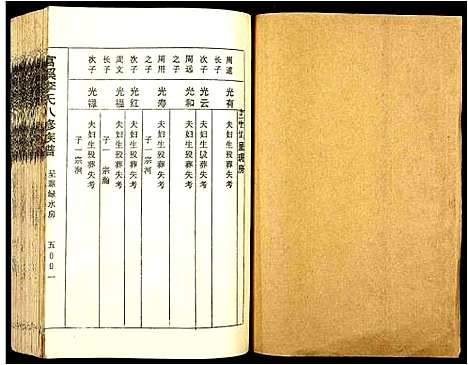 周遠
长子 光有 夫妇生殁葬失考
次子 光云 夫妇生殁葬失考
周远
之子 光和 夫妇生殁葬失考
周用
之子 光寿 夫妇生殁葬失考
子一宗河
次子 光红 夫妇生殁葬失考
周文
长子 光福 夫妇生殁葬失考
子一宗瀚
次子 光禄 夫妇生殁葬失考
子一宗洵
李氏八修族谱
绿水房
五〇〇一